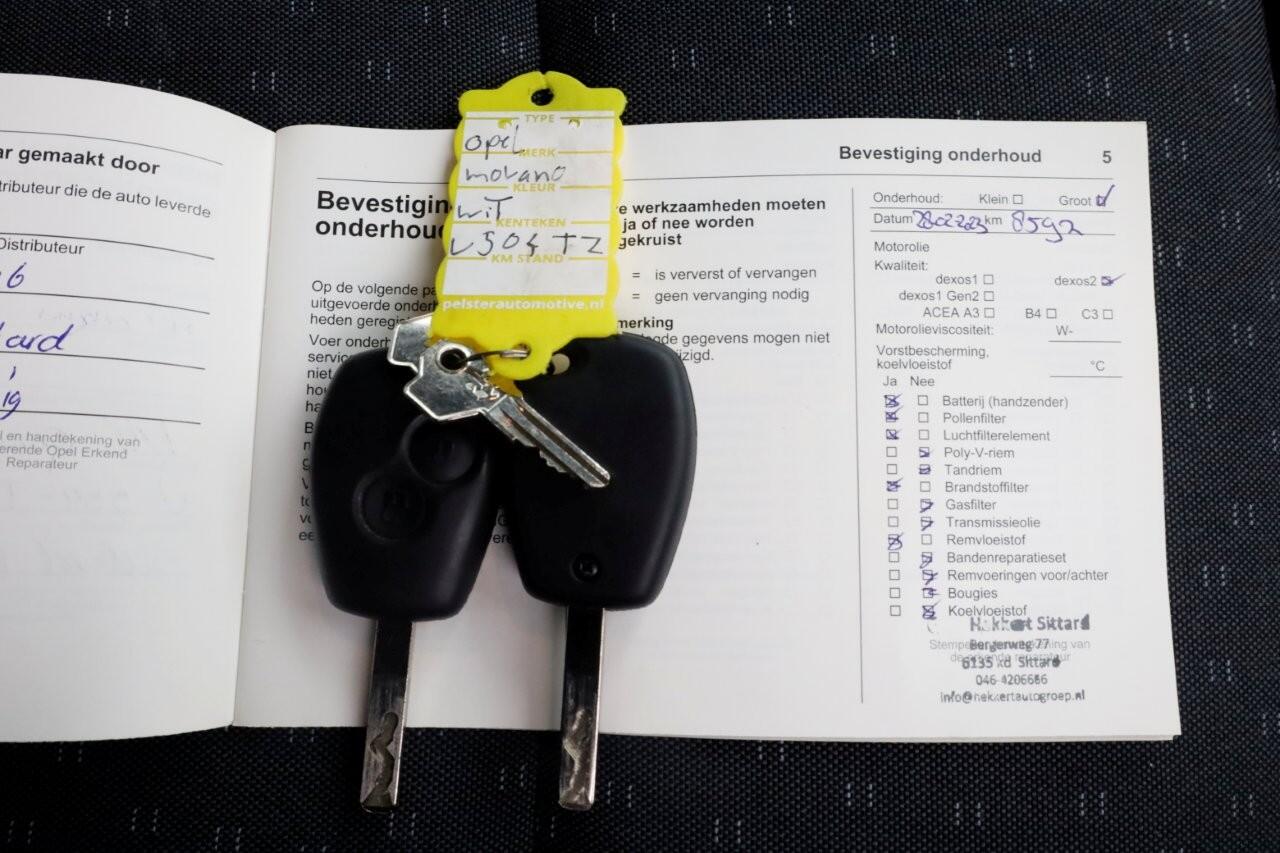 ar gemaakt door
tributeur die de auto leverde
Distributeur
6
ard
19
l en handtekening van
erende Opel Erkend
Reparateur
TYPE
opel
MERK
movano
KLEUR
wit
KENTEKEN
KM STAND
pelsterautomotive.nl
Bevestiging onderhoud 5
Bevestigin
onderhou
Op de volgende pa
uitgevoerde onder
heden geregi
Voer onder
servic
niet
e werkzaamheden moeten
ja of nee worden
gekruist
= is ververst of vervangen
= geen vervanging nodig
merking
gde gegevens mogen niet
zigd.
Onderhoud: Klein Groot
Datum km 8592
Motorolie
Kwaliteit:
dexos1 dexos2
dexos1 Gen2
ACEA A3 B4 C3
Motorolieviscositeit: W-
Vorstbescherming,
koelvloeistof °C
Ja Nee
Batterij (handzender)
Pollenfilter
Luchtfilterelement
Poly-V-riem
Tandriem
Brandstoffilter
Gasfilter
Transmissieolie
Remvloeistof
Bandenreparatieset
Remvoeringen voor/achter
Bougies
Koelvloeistof
Hekkert Sittard
Bergerweg 77
6135 kd Sittard
046-4206666
info@hekkertautogroep.nl